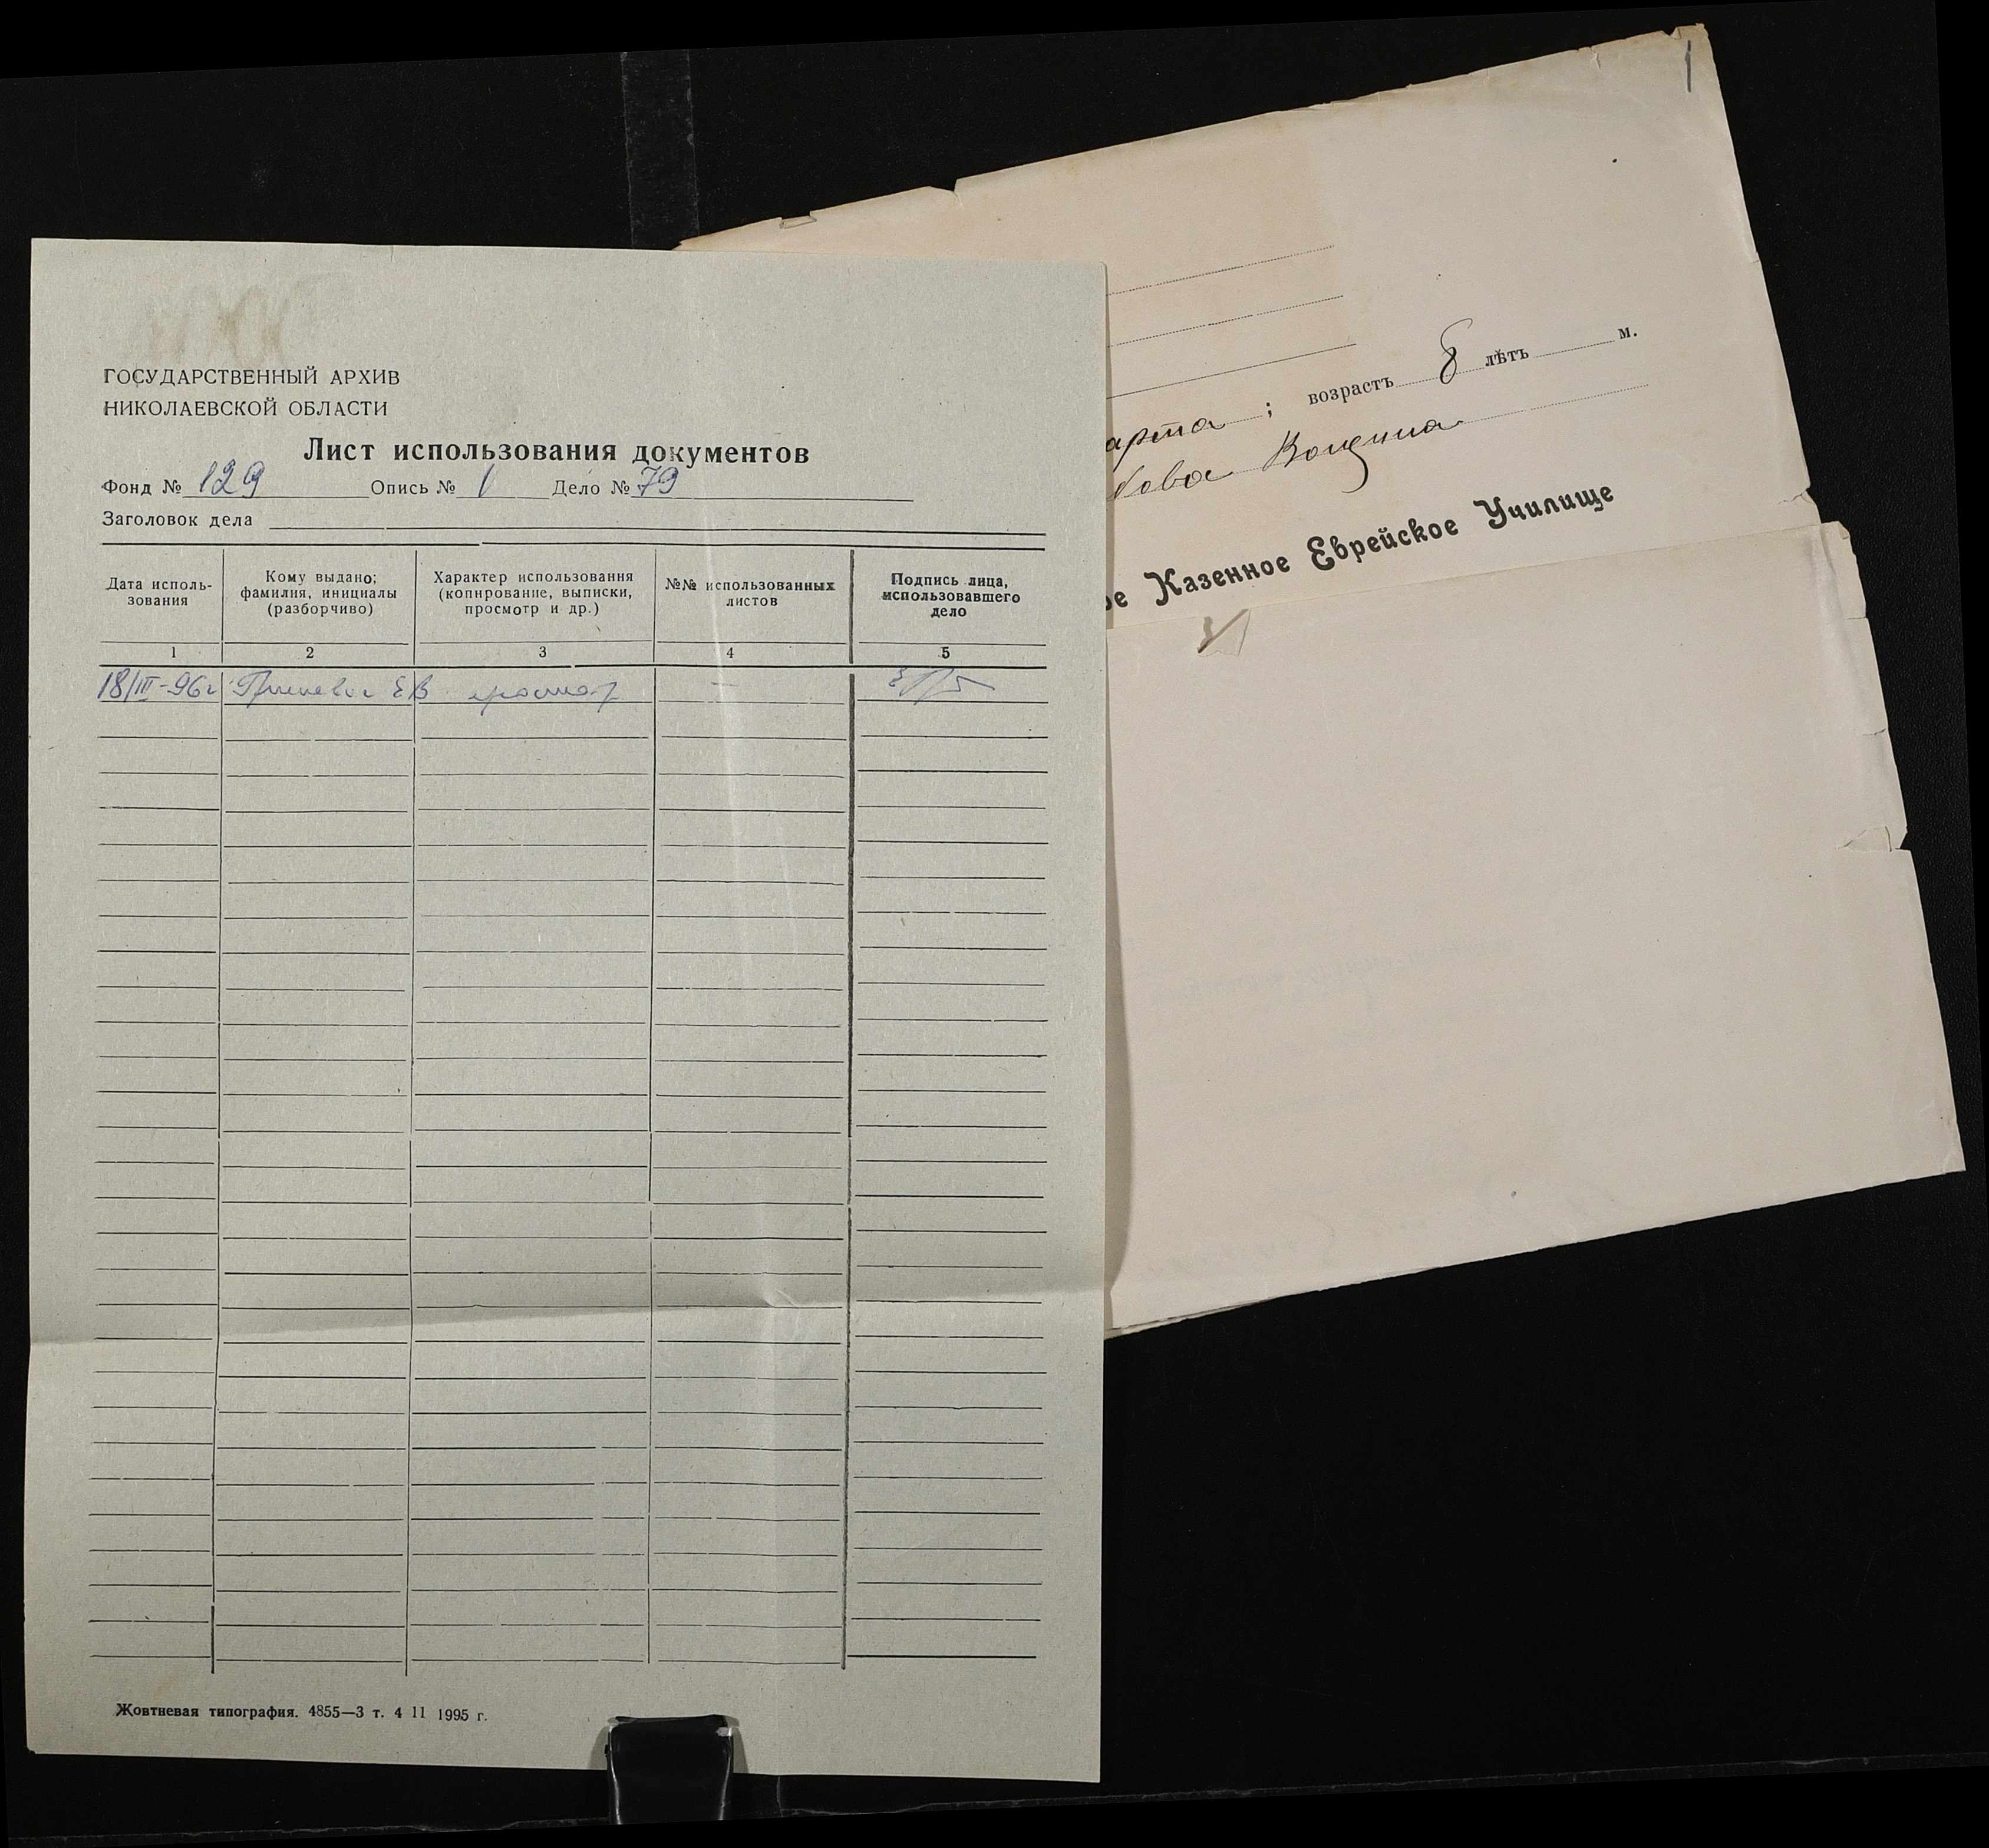 ГОСУДАРСТВЕННЫЙ АРХИВ
НИКОЛАЕВСКОЙ ОБЛАСТИ
Лист использования документов
Фонд № 129 Опись № 1 Дело № 79
Заголовок дела
Дата исполь-
зования
Кому выдано;
фамилия, инициалы
(разборчиво)
Характер использования
(копирование, выписки,
просмотр и др.)
№№ использованных
листов
Подпись лица,
использовавшего
дело
1 2 3 4 5
18/III-96г ЕВ просмотр —
Жовтневая типография. 4855—3 т. 4 11 1995 г.
1
арта ; возрастъ 8 лѣтъ м.
ое Казенное Еврейское Училище